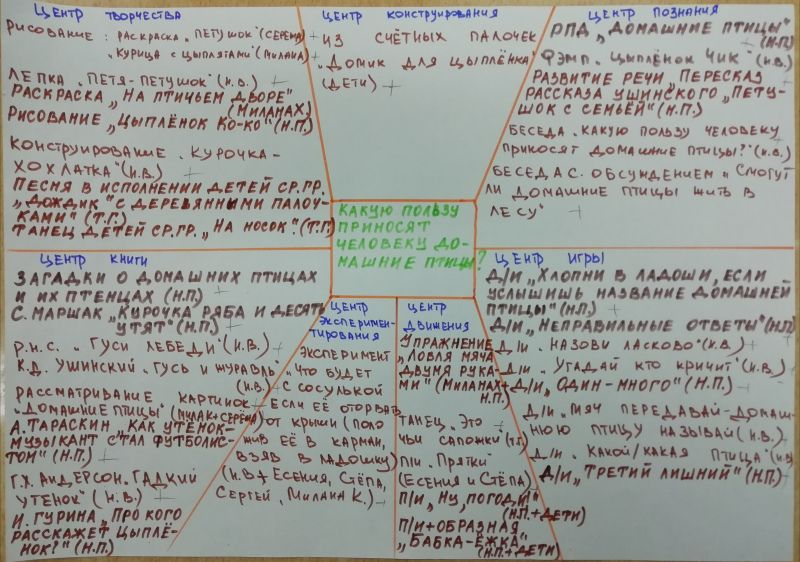 ЦЕНТР ТВОРЧЕСТВА
РИСОВАНИЕ: РАСКРАСКА „ПЕТУШОК“ (СЕРЁЖА)
„КУРИЦА С ЦЫПЛЯТАМИ“ (МИЛАНА)
ЛЕПКА „ПЕТЯ-ПЕТУШОК“ (Н.В.)
РАСКРАСКА „НА ПТИЧЬЕМ ДВОРЕ“
(МИЛАНАХ.)
РИСОВАНИЕ „ЦЫПЛЁНОК КО-КО“ (Н.П.)
КОНСТРУИРОВАНИЕ „КУРОЧКА-
ХОХЛАТКА“ (Н.В.)
ПЕСНЯ В ИСПОЛНЕНИИ ДЕТЕЙ СР.ГР.
„ДОЖДИК“ С ДЕРЕВЯННЫМИ ПАЛОЧ-
КАМИ“ (Т.Г.)
ТАНЕЦ ДЕТЕЙ СР.ГР. „НА НОСОК“ (Т.Г.)
ЦЕНТР КОНСТРУИРОВАНИЯ
ИЗ СЧЁТНЫХ ПАЛОЧЕК
„ДОМИК ДЛЯ ЦЫПЛЁНКА“
(ДЕТИ)
ЦЕНТР ПОЗНАНИЯ
РПД „ДОМАШНИЕ ПТИЦЫ“
(Н.П)
ФЭМП „ЦЫПЛЁНОК ЧИК“ (Н.В.)
РАЗВИТИЕ РЕЧИ „ПЕРЕСКАЗ
РАССКАЗА УШИНСКОГО „ПЕТУ-
ШОК С СЕМЬЁЙ“ (Н.П.)
БЕСЕДА „КАКУЮ ПОЛЬЗУ ЧЕЛОВЕКУ
ПРИНОСЯТ ДОМАШНИЕ ПТИЦЫ?“ (Н.В.)
БЕСЕДА С ОБСУЖДЕНИЕМ „СМОГУТ
ЛИ ДОМАШНИЕ ПТИЦЫ ЖИТЬ В
ЛЕСУ“
КАКУЮ ПОЛЬЗУ
ПРИНОСЯТ
ЧЕЛОВЕКУ ДО-
МАШНИЕ ПТИЦЫ?
ЦЕНТР КНИГИ
ЗАГАДКИ О ДОМАШНИХ ПТИЦАХ
И ИХ ПТЕНЦАХ (Н.П)
С. МАРШАК „КУРОЧКА РЯБА И ДЕСЯТЬ
УТЯТ“ (Н.П.)
Р.Н.С. „ГУСИ ЛЕБЕДИ“ (Н.В.)
К.Д. УШИНСКИЙ „ГУСЬ И ЖУРАВЛЬ“
(Н.В.)
РАССМАТРИВАНИЕ КАРТИНОК
„ДОМАШНИЕ ПТИЦЫ“ (МИЛАК+СЕРЁЖА)
А. ТАРАСКИН „КАК УТЁНОК-
МУЗЫКАНТ СТАЛ ФУТБОЛИС-
ТОМ“ (Н.П.)
Г.Х. АНДЕРСОН „ГАДКИЙ
УТЕНОК“ (Н.В.)
И. ГУРИНА „ПРО КОГО
РАССКАЖЕТ ЦЫПЛЁ-
НОК?“ (Н.П.)
ЦЕНТР
ЭКСПЕРИМЕН-
ТИРОВАНИЯ
ЭКСПЕРИМЕНТ
„ЧТО БУДЕТ
С СОСУЛЬКОЙ
ЕСЛИ ЕЁ ОТОРВАТЬ
ОТ КРЫШИ (ПОЛО
ЖИВ ЕЁ В КАРМАН,
ВЗЯВ В ЛАДОШКУ)
(Н.В + ЕСЕНИЯ, СТЁПА,
СЕРГЕЙ, МИЛАНА К.)
ЦЕНТР
ДВИЖЕНИЯ
УПРАЖНЕНИЕ
„ЛОВЛЯ МЯЧА
ДВУМЯ РУКА-
МИ“ (МИЛАНАХ+
Н.П.)
ТАНЕЦ „ЭТО
ЧЬИ САПОЖКИ“ (Т.Г)
П/И „ПРЯТКИ“
(ЕСЕНИЯ И СТЁПА)
П/И „НУ, ПОГОДИ“
(Н.П.+ДЕТИ)
П/И+ОБРАЗНАЯ
„БАБКА-ЁЖКА“
(Н.П.+ДЕТИ)
ЦЕНТР ИГРЫ
Д/И „ХЛОПНИ В ЛАДОШИ, ЕСЛИ
УСЛЫШИШЬ НАЗВАНИЕ ДОМАШНЕЙ
ПТИЦЫ“ (Н.П.)
Д/И „НЕПРАВИЛЬНЫЕ ОТВЕТЫ“ (Н.П)
Д/И „НАЗОВИ ЛАСКОВО“ (Н.В.)
Д/И „УГАДАЙ КТО КРИЧИТ“ (Н.В.)
Д/И „ОДИН-МНОГО“ (Н.П.)
Д/И „МЯЧ ПЕРЕДАВАЙ-ДОМАШ-
НЮЮ ПТИЦУ НАЗЫВАЙ“ (Н.В.)
Д/И „КАКОЙ/КАКАЯ ПТИЦА“ (Н.В)
Д/И „ТРЕТИЙ ЛИШНИЙ“ (Н.П)